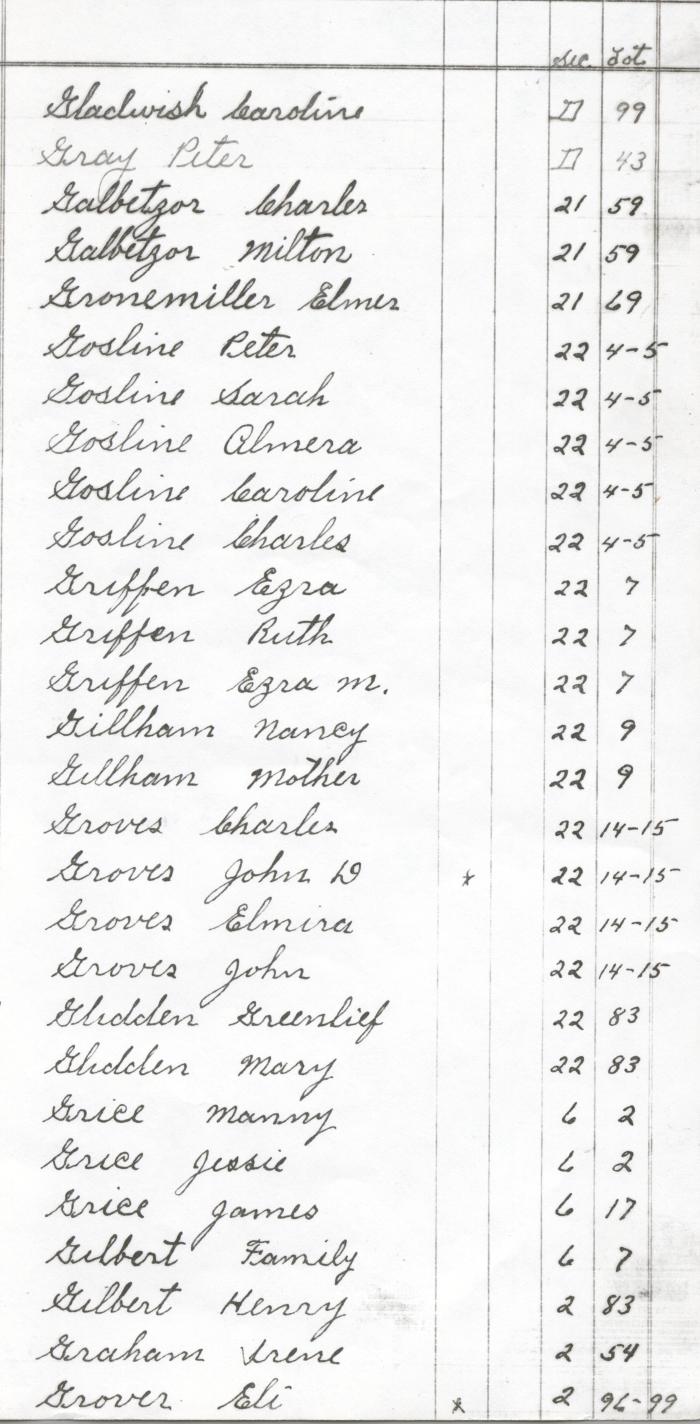 Sec. Lot
Gladwish Caroline D 99
Gray Peter D 43
Galbetzor Charles 21 59
Galbetzor Milton 21 59
Gronemiller Elmer 21 69
Gosline Peter 22 4-5
Gosline Sarah 22 4-5
Gosline Almera 22 4-5
Gosline Caroline 22 4-5
Gosline Charles 22 4-5
Griffen Ezra 22 7
Griffen Ruth 22 7
Griffen Ezra M. 22 7
Gillham Nancy 22 9
Gillham Mother 22 9
Groves Charles 22 14-15
Groves John D * 22 14-15
Groves Elmira 22 14-15
Groves John 22 14-15
Glidden Greenlief 22 83
Glidden Mary 22 83
Grice Manny 6 2
Grice Jessie 6 2
Grice James 6 17
Gilbert Family 6 7
Gilbert Henry 2 83
Graham Irene 2 54
Grover Eli * 2 96-99